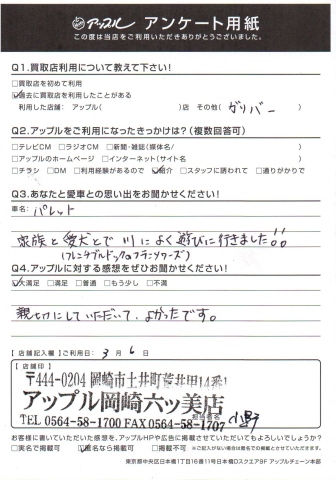 アップル アンケート用紙
この度は当店をご利用いただきありがとうございました。
Q1.買取店利用について教えて下さい!
□買取店を初めて利用
☑過去に買取店を利用したことがある
利用した店舗: アップル( )店 その他( ガリバー )
Q2.アップルをご利用になったきっかけは?(複数回答可)
□テレビCM □ラジオCM □新聞・雑誌(媒体名/ )
□アップルのホームページ □インターネット(サイト名 )
□チラシ □DM □利用経験があるので ☑紹介 □スタッフに誘われて □通りがかりで
Q3.あなたと愛車との思い出をお聞かせください!
車名: パレット
家族と愛犬とで川によく遊びに行きました!!
(フレンチブルドックのフランソワーズ)
Q4.アップルに対する感想をぜひお聞かせください!
☑大満足 □満足 □普通 □もう少し □不満
親切にしていただいて、よかったです。
【店舗記入欄】ご利用日: 3月6日
【店舗印】
〒444-0204 岡崎市土井町荒井甲14番1
アップル岡崎六ッ美店
TEL 0564-58-1700 FAX 0564-58-1707
担当者名
お客様に書いていただいた感想を、アップルHPや広告に掲載させていただいてもよろしいでしょうか?
□実名で掲載可 ☑匿名なら掲載可 □掲載不可 ※ご記入がない場合は匿名での掲載とさせていただきます。
東京都中央区日本橋1丁目16番11号日本橋Dスクエア9F アップルチェーン本部